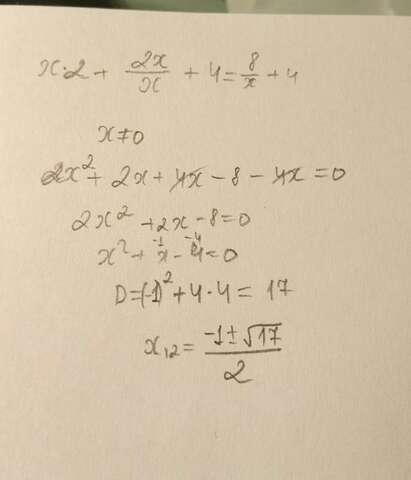 x·2 + 2x/x + 4 = 8/x + 4
x ≠ 0
2x² + 2x + 4x - 8 - 4x = 0
2x² + 2x - 8 = 0
x² + x - 4 = 0
D = (-1)² + 4·4 = 17
x₁,₂ = (-1 ± √17)/2